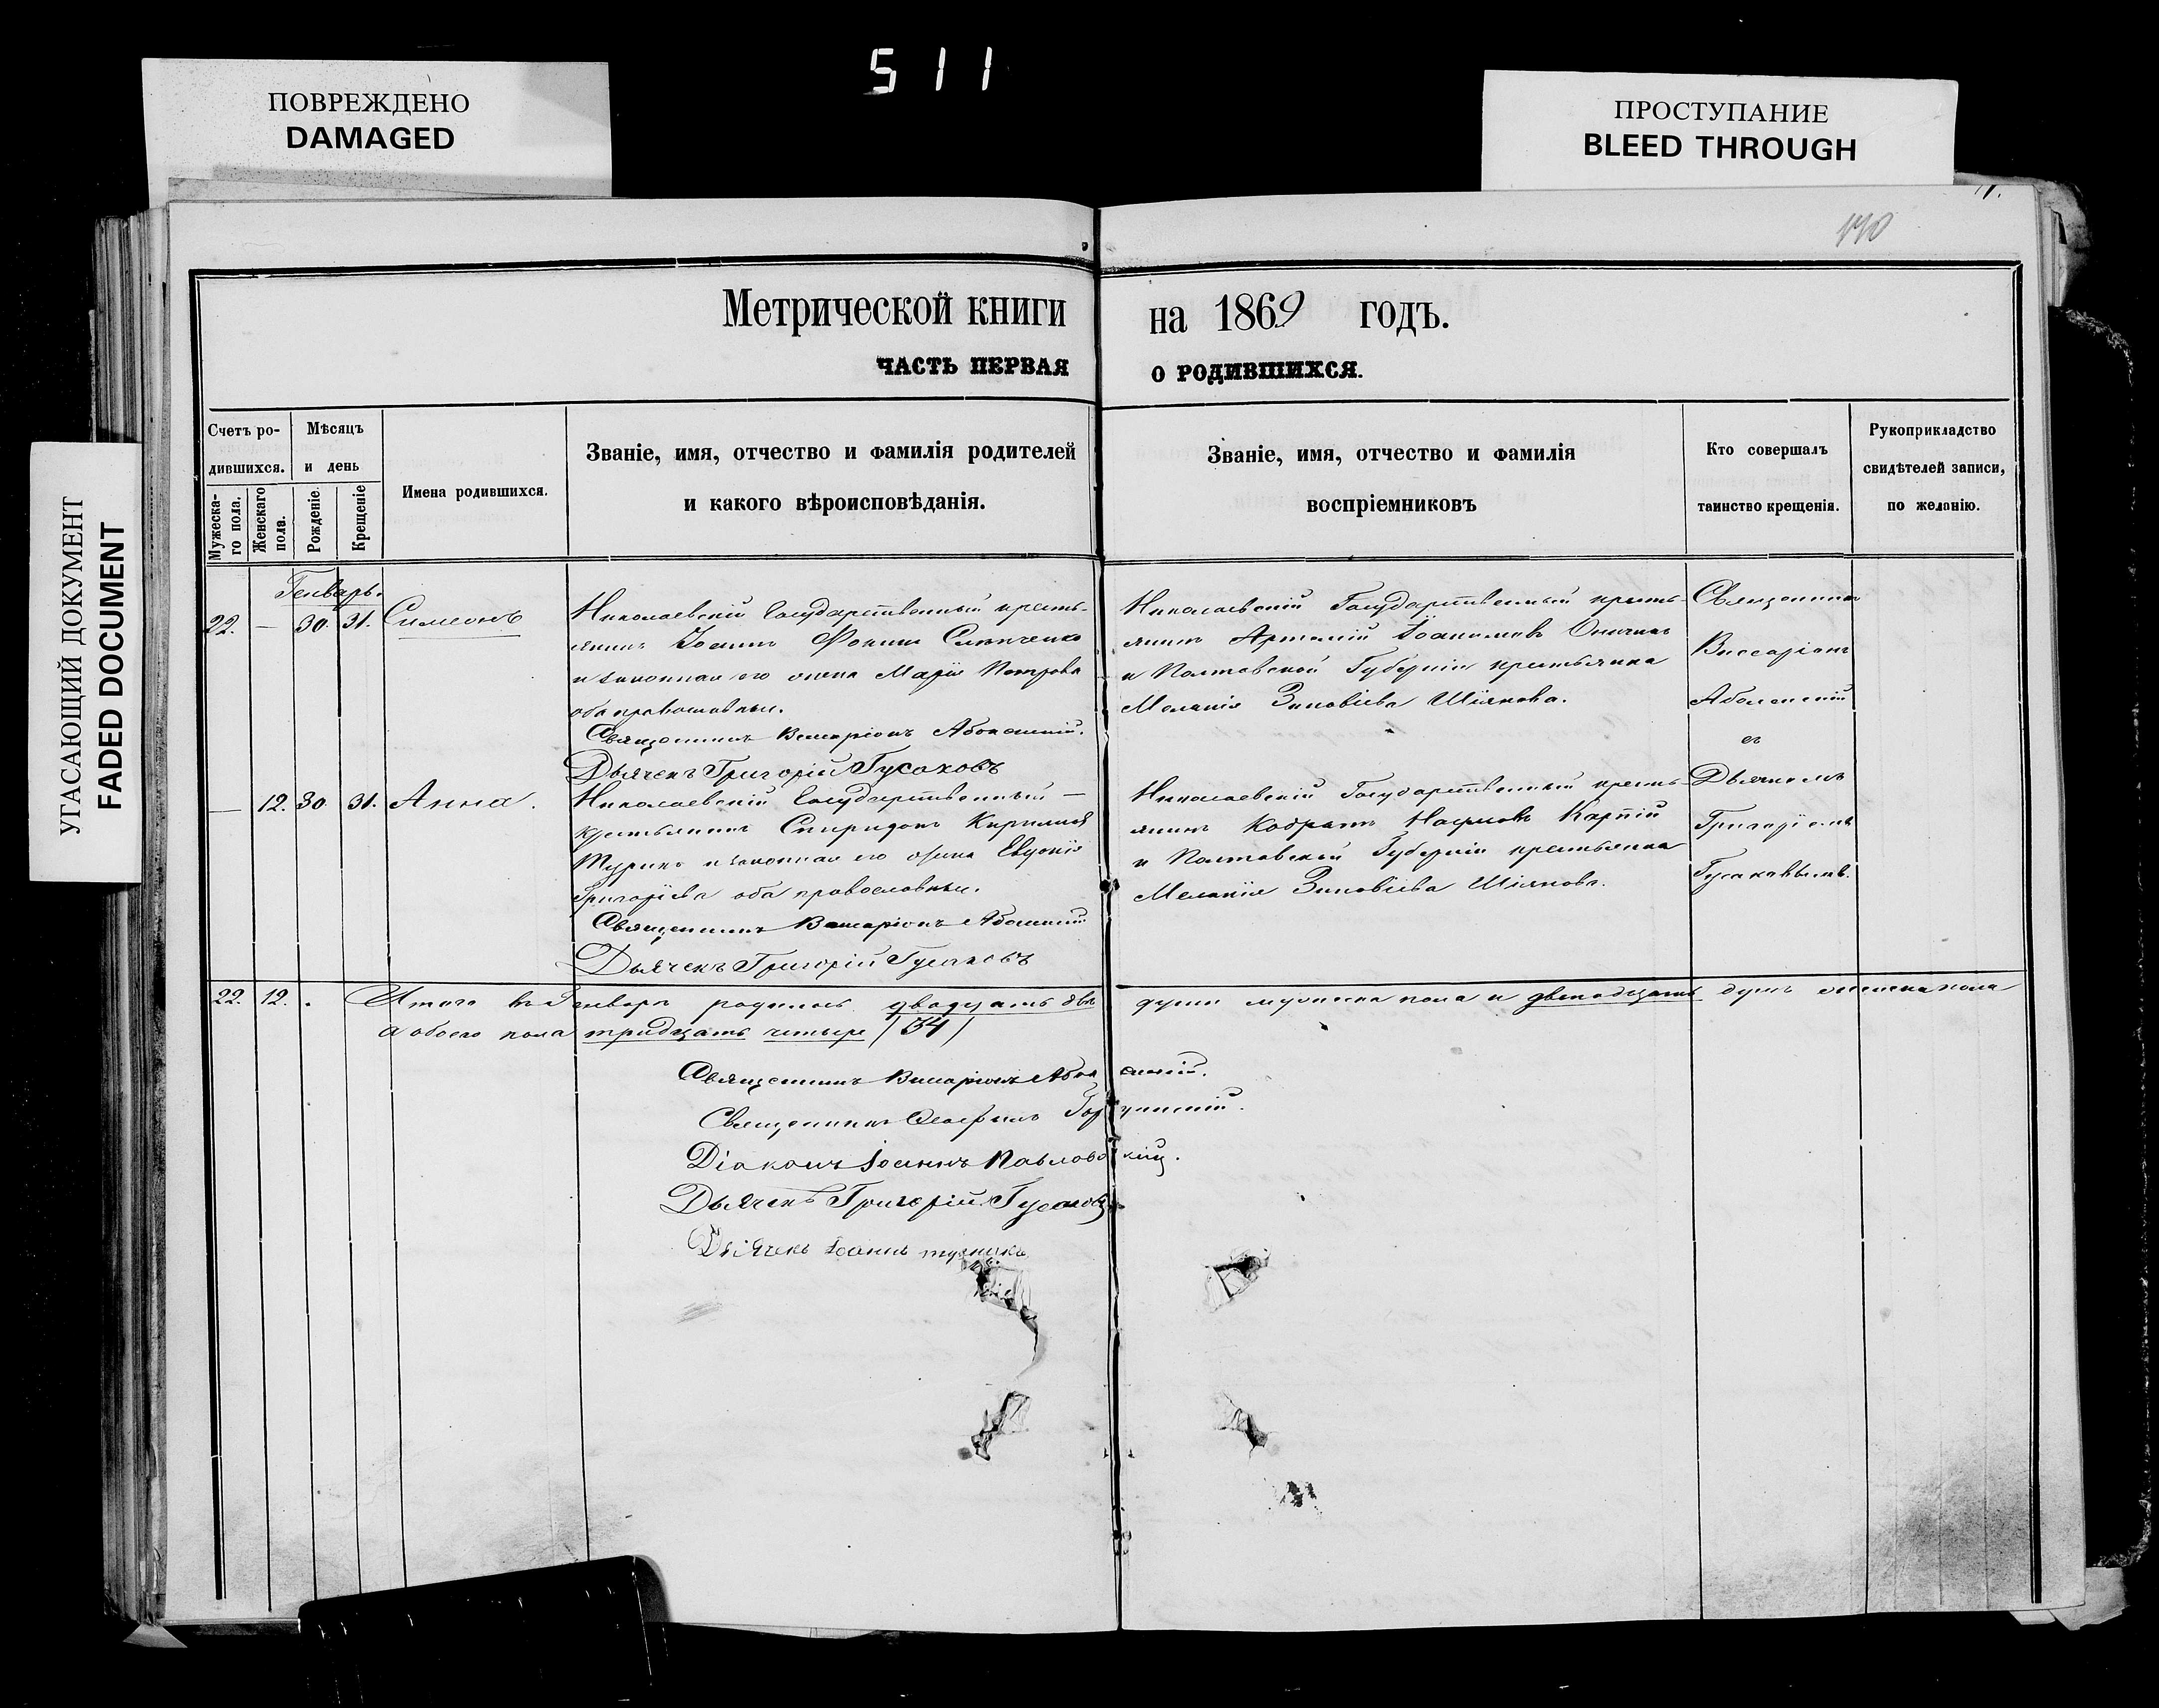 511
ПОВРЕЖДЕНО
DAMAGED
ПРОСТУПАНИЕ
BLEED THROUGH
УГАСАЮЩИЙ ДОКУМЕНТ
FADED DOCUMENT
Метрической книги на 1869 годъ.
ЧАСТЬ ПЕРВАЯ О РОДИВШИХСЯ.
Счетъ ро-
дившихся.
Мужеска-
го пола.
Женскаго
пола.
Мѣсяцъ
и день
Рожденіе.
Крещеніе
Имена родившихся.
Званіе, имя, отчество и фамилія родителей
и какого вѣроисповѣданія.
Званіе, имя, отчество и фамилія
воспріемниковъ
Кто совершалъ
таинство крещенія.
Рукоприкладство
свидѣтелей записи,
по желанію.
Генварь.
22. — 30. 31. Симеонъ
Николаевскій Государственный кресть-
янинъ Іоаннъ Фокинъ
и законная его жена Марія Петрова
оба православные.
Священникъ Виссаріонъ
Дьячекъ Григорій Гусаковъ
Николаевскій Государственный кресть-
янинъ Артемій Іоакимовъ
и Полтавской Губерніи крестьянка
Меланія Зиновіева Шіянова.
Священникъ
Виссаріонъ
съ
Дьячкомъ
Григоріемъ
Гусаковымъ.
— 12. 30. 31. Анна.
Николаевскій Государственный —
крестьянинъ Спиридонъ Кирилловъ
Туринъ и законная его жена Евдокія
Григорьева оба православные.
Священникъ Виссаріонъ
Дьячекъ Григорій Гусаковъ
Николаевскій Государственный кресть-
янинъ Кодратъ Наумовъ Карпій
и Полтавской Губерніи крестьянка
Меланія Зиновіева Шіянова.
22. 12. Итого въ Генварѣ родилось двадцать двѣ души мужеска пола и двенадцать душъ женска пола
а обоего пола тридцать четыре (34)
Священникъ Виссаріонъ
Священникъ
Діаконъ Іоаннъ Павловскій.
Дьячекъ Григорій Гусаковъ
Дьячекъ Іоаннъ